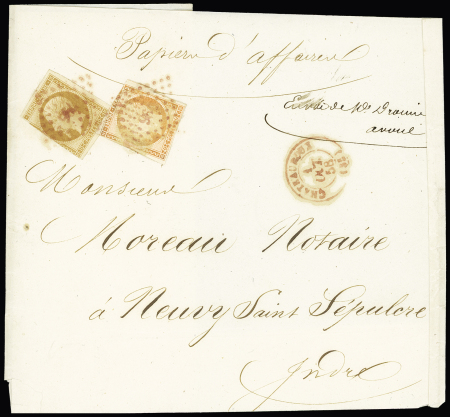 Papiers d'affaires
Etude de Me
avoué
Monsieur
Moreau Notaire
à Neuvy Saint Sépulcre
Indre